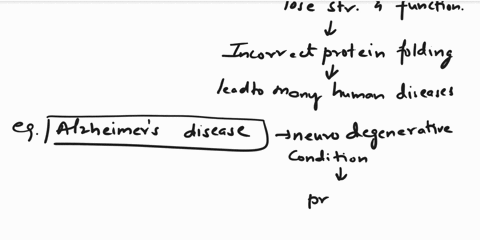 lose str. & function.
Incorrect protein folding
lead to many human diseases
eg. Alzheimer's disease → neuro degenerative
Condition
pr